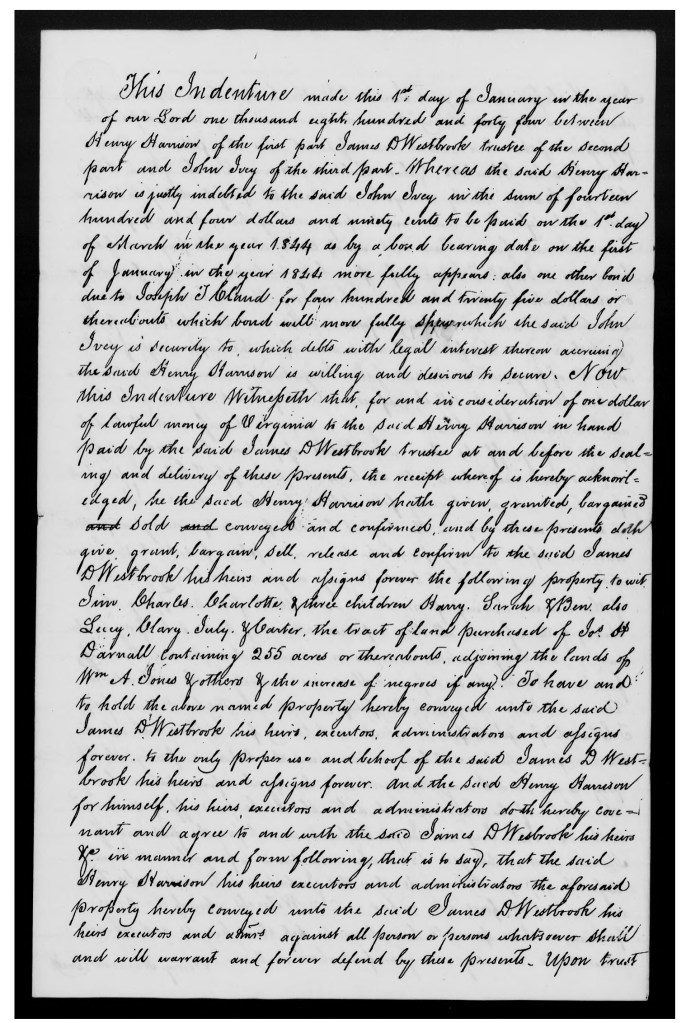 This Indenture made this 1st day of January in the year
of our Lord one thousand eight hundred and forty four between
Henry Harrison of the first part James D Westbrook trustee of the second
part and John Ivey of the third part - Whereas the said Henry Har-
rison is justly indebted to the said John Ivey in the sum of fourteen
hundred and four dollars and ninety cents to be paid on the 1st day
of March in the year 1844 as by a bond bearing date on the first
of January in the year 1844 more fully appears; also one other bond
due to Joseph T Cland for four hundred and twenty five dollars or
thereabouts which bond will more fully shew which the said John
Ivey is security to, which debts with legal interest thereon accruing
the said Henry Harrison is willing and desirous to secure. Now
this Indenture Witnesseth that, for and in consideration of one dollar
of lawful money of Virginia to the said Henry Harrison in hand
paid by the said James D Westbrook trustee at and before the seal=
ing and delivery of these presents, the receipt whereof is hereby acknowl=
edged, he the said Henry Harrison hath given, granted, bargained
and sold and conveyed and confirmed, and by these presents doth
give, grant, bargain, sell, release and confirm to the said James
D Westbrook his heirs and assigns forever the following property, to wit
Jim, Charles, Charlotte, & three children Harry, Sarah & Ben, also
Lucy, Clary, July, & Carter, the tract of land purchased of Jos. H
Darnall containing 255 acres or thereabouts, adjoining the lands of
Wm A. Jones & others & the increase of negroes if any. To have and
to hold the above named property hereby conveyed unto the said
James D. Westbrook his heirs, executors, administrators and assigns
forever, to the only proper use and behoof of the said James D West=
brook his heirs and assigns forever. And the said Henry Harrison
for himself, his heirs, executors and administrators doth hereby cove=
nant and agree to and with the said James D Wesbrook his heirs
&c in manner and form following, that is to say, that the said
Henry Harrison his heirs executors and administrators the aforesaid
property hereby conveyed unto the said James D Westbrook his
heirs executors and admrs. against all person or persons whatsoever shall
and will warrant and forever defend by these presents - Upon trust